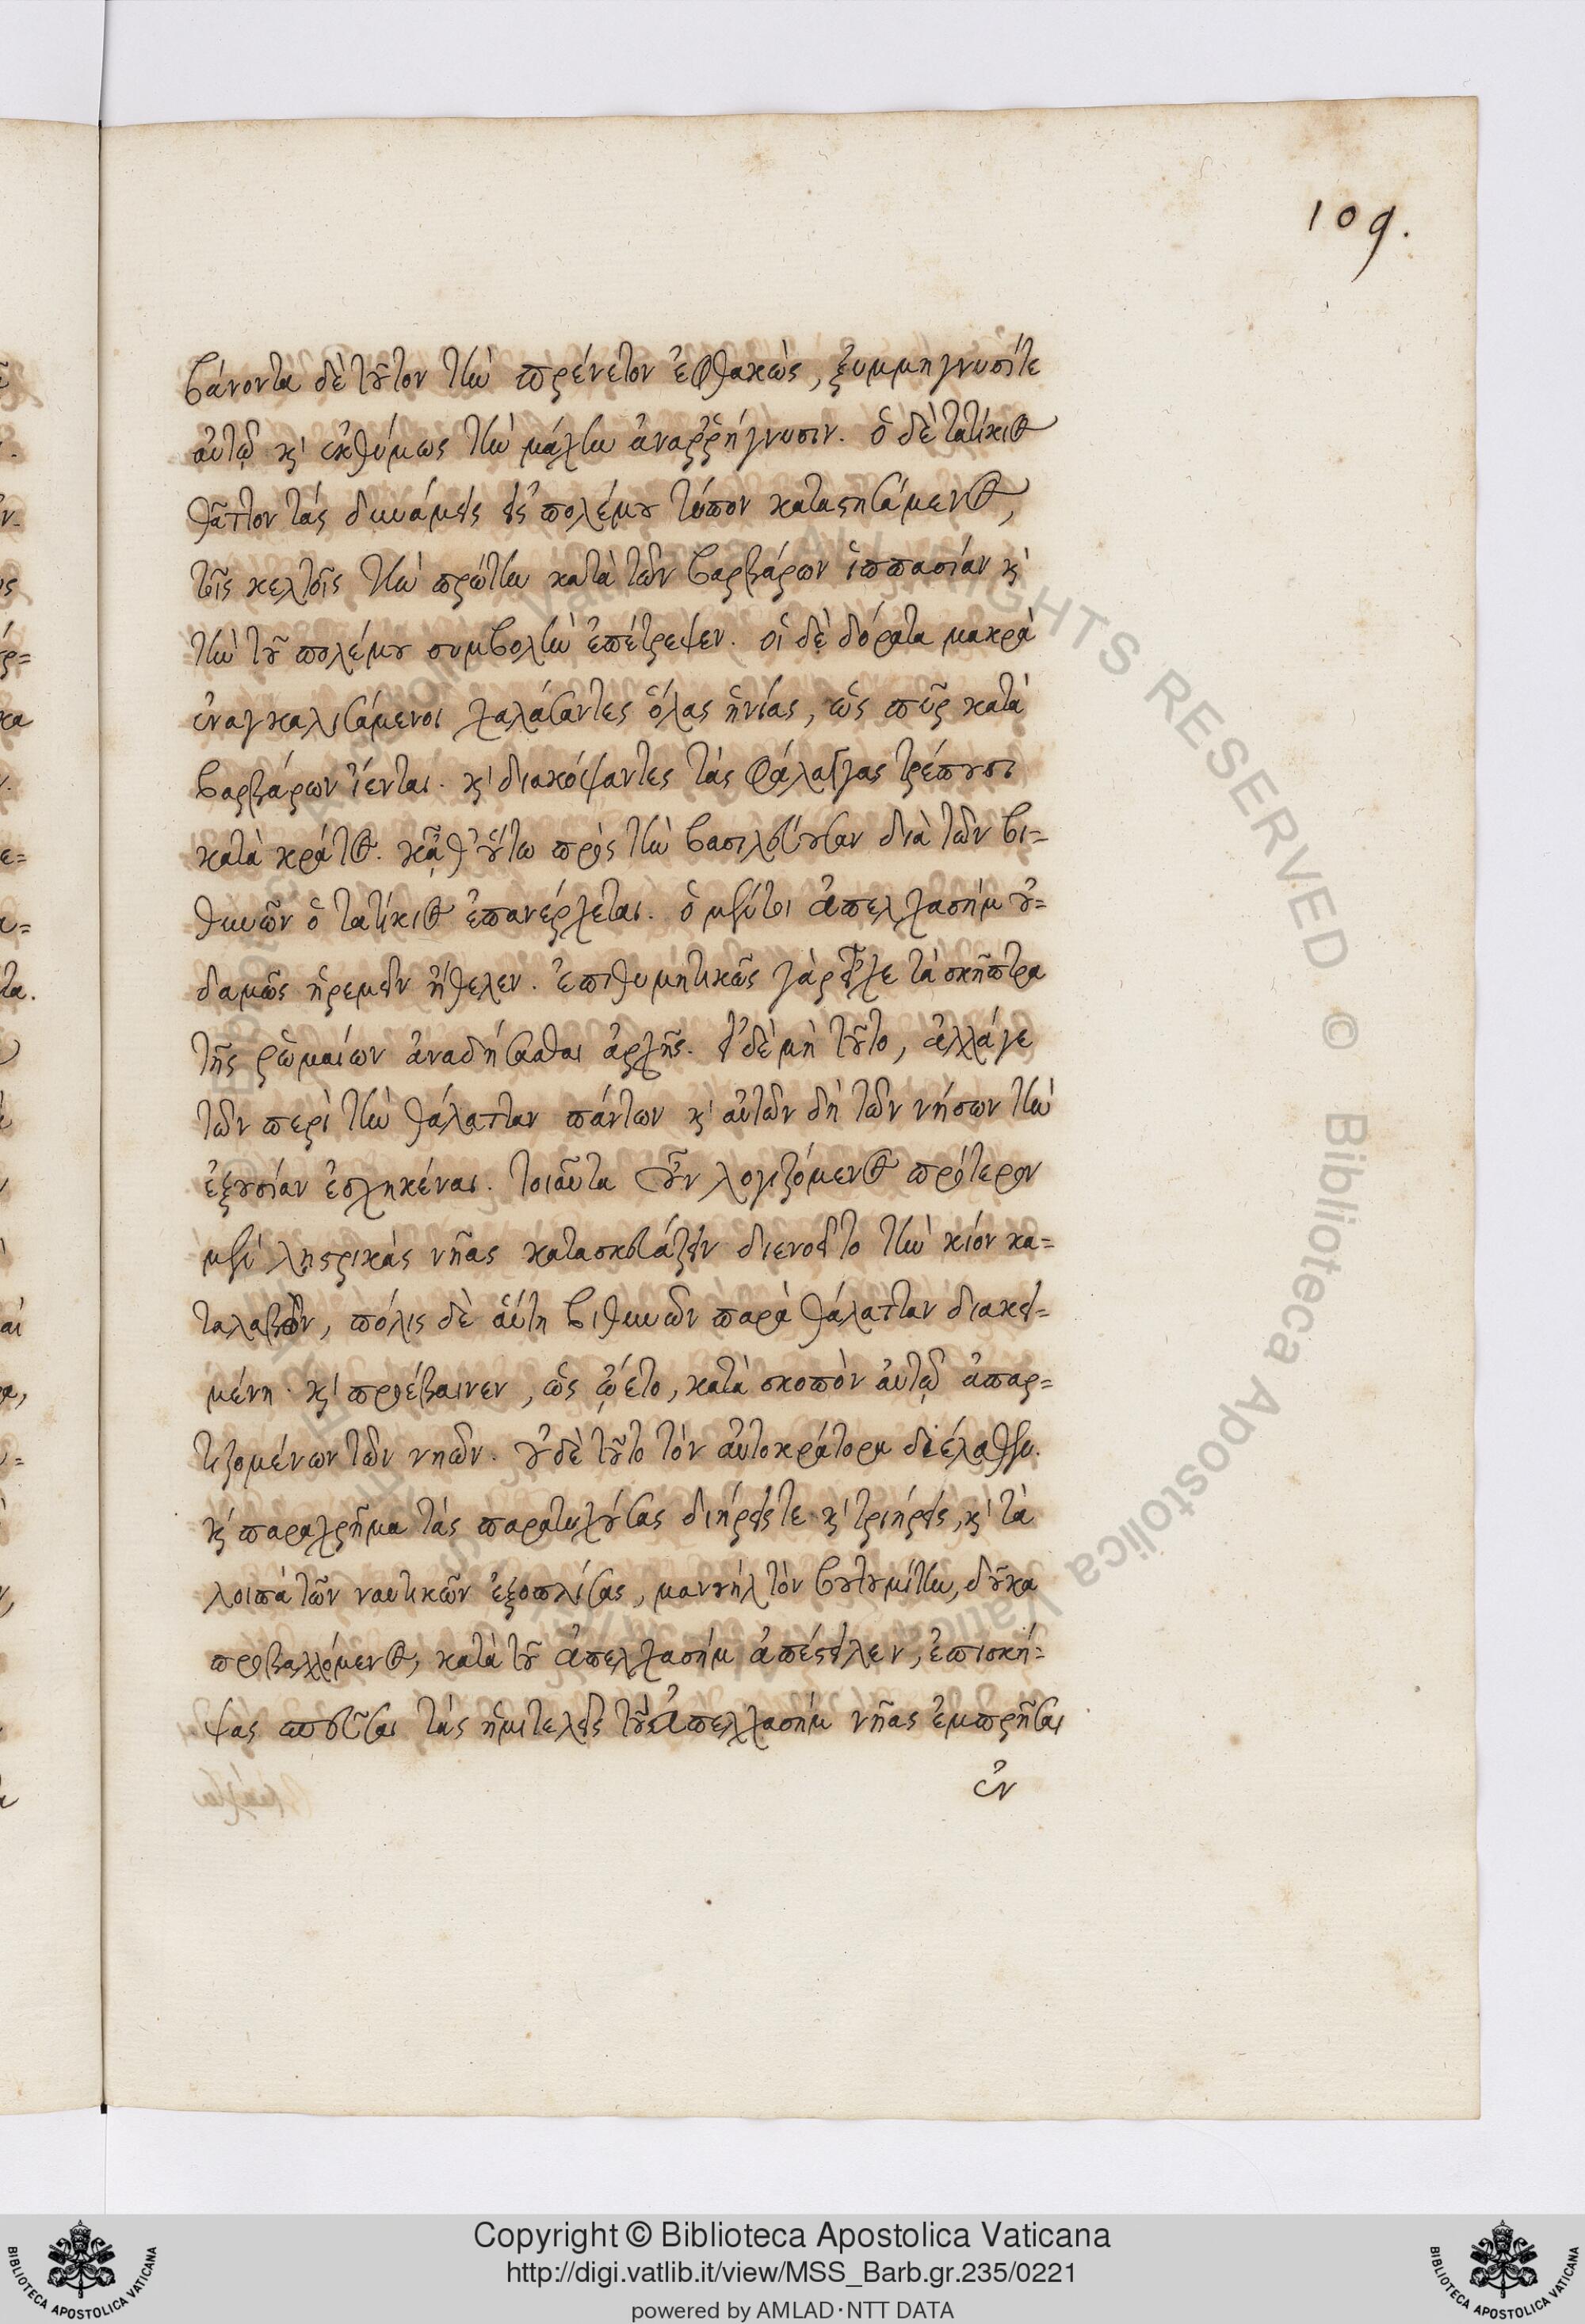 109.
βάνοντα δὲ τοῦτον τὴν πρένετον ἐφθακὼς, ξυμμηγνυσίτε
αὐτῷ καὶ ἐκθύμως τὴν μάχην ἀναῤῥήγνυσιν. ὁ δὲ τατίκιος
θᾶττον τὰς δυνάμεις εἰς πολέμου τύπον καταστησάμενος,
τοῖς κελτοῖς τὴν πρώτην κατὰ τῶν βαρβάρων ἱππασίαν καὶ
τὴν τοῦ πολέμου συμβολὴν ἐπέτρεψεν. οἱ δὲ δόρατα μακρὰ
ἐναγκαλισάμενοι χαλάσαντες ὅλας ἡνίας, ὡς πῦρ κατὰ
βαρβάρων ἵενται. καὶ διακόψαντες τὰς φάλαγγας τρέπουσι
κατὰ κράτος. κᾆθ' οὕτω πρὸς τὴν βασιλεύουσαν διὰ τῶν βι=
θυνῶν ὁ τατίκιος ἐπανέρχεται. ὁ μέντοι ἀπελχασὴμ οὐ=
δαμῶς ἠρεμεῖν ἤθελεν. ἐπιθυμητικῶς γὰρ εἶχε τὰ σκῆπτρα
τῆς ῥωμαίων ἀναδήσασθαι ἀρχῆς. εἰ δὲ μὴ τοῦτο, ἀλλάγε
τῶν περὶ τὴν θάλατταν πάντων καὶ αὐτῶν δὴ τῶν νήσων τὴν
ἐξουσίαν ἐσχηκέναι. τοιαῦτα οὖν λογιζόμενος πρότερον
μὲν λῃστρικὰς νῆας κατασκευάζειν διενοεῖτο τὴν κίον κα=
ταλαβὼν, πόλις δὲ αὕτη βιθυνῶν παρὰ θάλατταν διακει=
μένη. καὶ προέβαινεν, ὡς ᾤετο, κατὰ σκοπὸν αὐτῷ ἀπαρ=
τιζομένων τῶν νηῶν. οὐδὲ τοῦτο τὸν αὐτοκράτορα διέλαθεν.
καὶ παραχρῆμα τὰς παρατυχούσας διήρεις τε καὶ τριήρεις, καὶ τὰ
λοιπὰ τῶν ναυτικῶν ἐξοπλίσας, μανουὴλ τὸν βουτουμίτην, δοῦκα
προβαλλόμενος, κατὰ τοῦ ἀπελχασὴμ ἀπέστειλεν, ἐπισκή=
ψας σπεῦσαι τὰς ἡμιτελεῖς τοῦ ἀπελχασὴμ νῆας ἐμπρῆσαι
ἐν
Copyright © Biblioteca Apostolica Vaticana
http://digi.vatlib.it/view/MSS_Barb.gr.235/0221
powered by AMLAD·NTT DATA